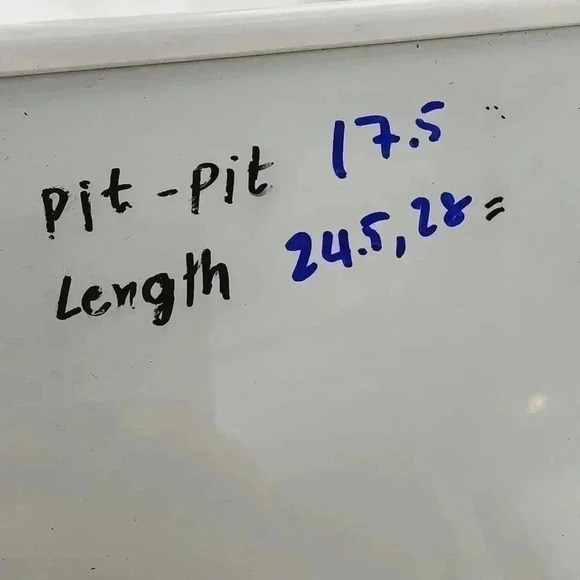 Pit - Pit 17.5"
Length 24.5, 28 =